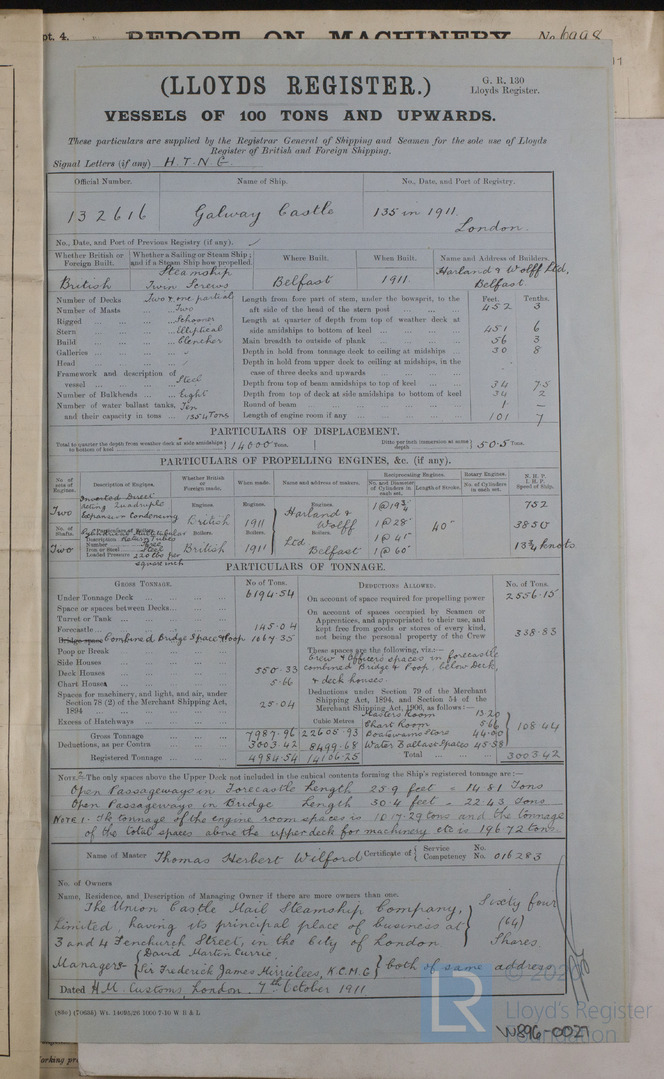 pt. 4.
REPORT ON MACHINERY No 6998
11
(LLOYDS REGISTER.)
G. R. 130
Lloyds Register.
VESSELS OF 100 TONS AND UPWARDS.
These particulars are supplied by the Registrar General of Shipping and Seamen for the sole use of Lloyds
Register of British and Foreign Shipping.
Signal Letters (if any) H.T.N.G.
Official Number. Name of Ship. No., Date, and Port of Registry.
132616 Galway Castle 135 in 1911.
London.
No., Date, and Port of Previous Registry (if any).
Whether British or Foreign Built. Whether a Sailing or Steam Ship; and if a Steam Ship how propelled. Where Built. When Built. Name and Address of Builders.
British Steamship Twin Screws Belfast 1911. Harland & Wolff Ltd, Belfast.
Number of Decks Two & one partial
Number of Masts Two
Rigged Schooner
Stern Elliptical
Build Clencher
Galleries
Head
Framework and description of vessel Steel
Number of Bulkheads Eight
Number of water ballast tanks, Ten
and their capacity in tons 1354 Tons
Feet. Tenths.
Length from fore part of stem, under the bowsprit, to the aft side of the head of the stern post 452 3
Length at quarter of depth from top of weather deck at side amidships to bottom of keel 451 6
Main breadth to outside of plank 56 3
Depth in hold from tonnage deck to ceiling at midships 30 8
Depth in hold from upper deck to ceiling at midships, in the case of three decks and upwards
Depth from top of beam amidships to top of keel 34 75
Depth from top of deck at side amidships to bottom of keel 34 2
Round of beam 1 —
Length of engine room if any 101 7
PARTICULARS OF DISPLACEMENT.
Total to quarter the depth from weather deck at side amidships to bottom of keel 14000 Tons. Ditto per inch immersion at same depth 50.5 Tons.
PARTICULARS OF PROPELLING ENGINES, &c. (if any).
No. of sets of Engines. Description of Engines. Whether British or Foreign made. When made. Name and address of makers. Reciprocating Engines. No. and Diameter of Cylinders in each set. Length of Stroke. Rotary Engines. No. of Cylinders in each set. N.H.P. I.H.P. Speed of Ship.
Two Inverted Direct Acting Quadruple Expansion Condensing
Engines. British Engines. 1911 Engines. Harland & Wolff
1 @ 19¾
1 @ 28"
1 @ 41"
1 @ 60"
40"
752
3850
13¾ knots
No. of Shafts. Two
Particulars of Boilers.
Description Cylindrical Multitubular Return Tubes
Number
Iron or Steel Steel
Loaded Pressure 220 lbs per square inch
Boilers. British Boilers. 1911 Boilers. Ltd Belfast
PARTICULARS OF TONNAGE.
GROSS TONNAGE. No of Tons.
Under Tonnage Deck 6194.54
Space or spaces between Decks
Turret or Tank
Forecastle 145.04
Bridge space Combined Bridge Space & Poop 1067.35
Poop or Break
Side Houses
Deck Houses 550.33
Chart Houses 5.66
Spaces for machinery, and light, and air, under Section 78 (2) of the Merchant Shipping Act, 1894 25.04
Excess of Hatchways
Cubic Metres
Gross Tonnage 7987.96 22605.93
Deductions, as per Contra 3003.42 8499.68
Registered Tonnage 4984.54 14106.25
DEDUCTIONS ALLOWED. No. of Tons.
On account of space required for propelling power 2556.15
On account of spaces occupied by Seamen or Apprentices, and appropriated to their use, and kept free from goods or stores of every kind, not being the personal property of the Crew 338.83
These spaces are the following, viz:—
Crew & Officers spaces in forecastle
combined Bridge & Poop, below Deck,
& deck houses.
Deductions under Section 79 of the Merchant Shipping Act, 1894, and Section 54 of the Merchant Shipping Act, 1906, as follows:—
Masters Room 13.20
Chart Room 5.66
Boatswains Stores 44.00
Water Ballast Spaces 45.58
108.44
Total 3003.42
NOTE 2.—The only spaces above the Upper Deck not included in the cubical contents forming the Ship's registered tonnage are:—
Open Passageways in Forecastle Length 25.9 feet = 14.81 Tons
Open Passageways in Bridge Length 30.4 feet = 22.43 Tons
NOTE 1. The tonnage of the engine room spaces is 1017.29 tons and the tonnage
of the total spaces above the upper deck for machinery etc is 196.72 tons.
Name of Master Thomas Herbert Wilford Certificate of { Service No.
Competency No. 016283
No. of Owners
Name, Residence, and Description of Managing Owner if there are more owners than one.
The Union Castle Mail Steamship Company, Sixty four
Limited, having its principal place of business at (64)
3 and 4 Fenchurch Street, in the City of London. Shares.
Managers { David Martin Currie
Sir Frederick James Mirrielees, K.C.M.G } both of same address
Dated H.M. Customs, London. 7th October 1911
(886) (70635) Wt. 14093/26 1000 7-10 W B & L
LR
Lloyd's Register
Foundation
W896-0027
arking pr